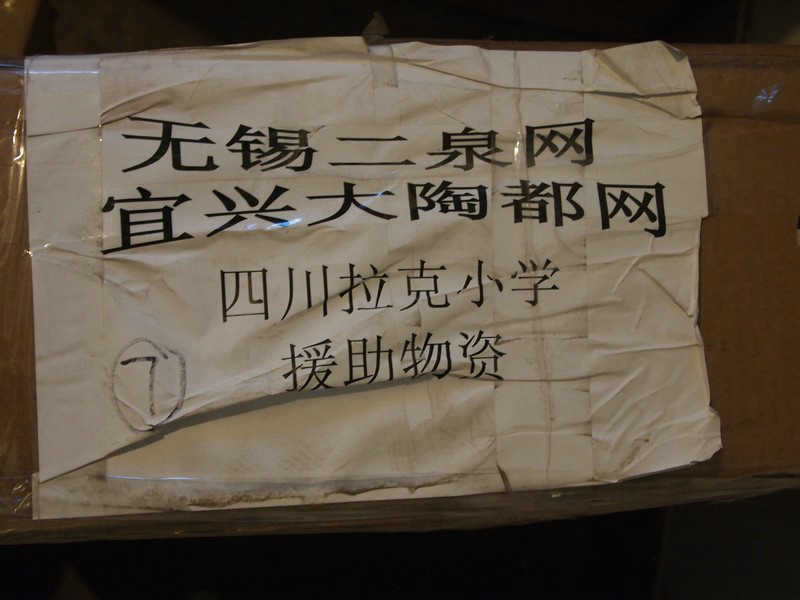 无锡二泉网
宜兴大陶都网
四川拉克小学
援助物资
7